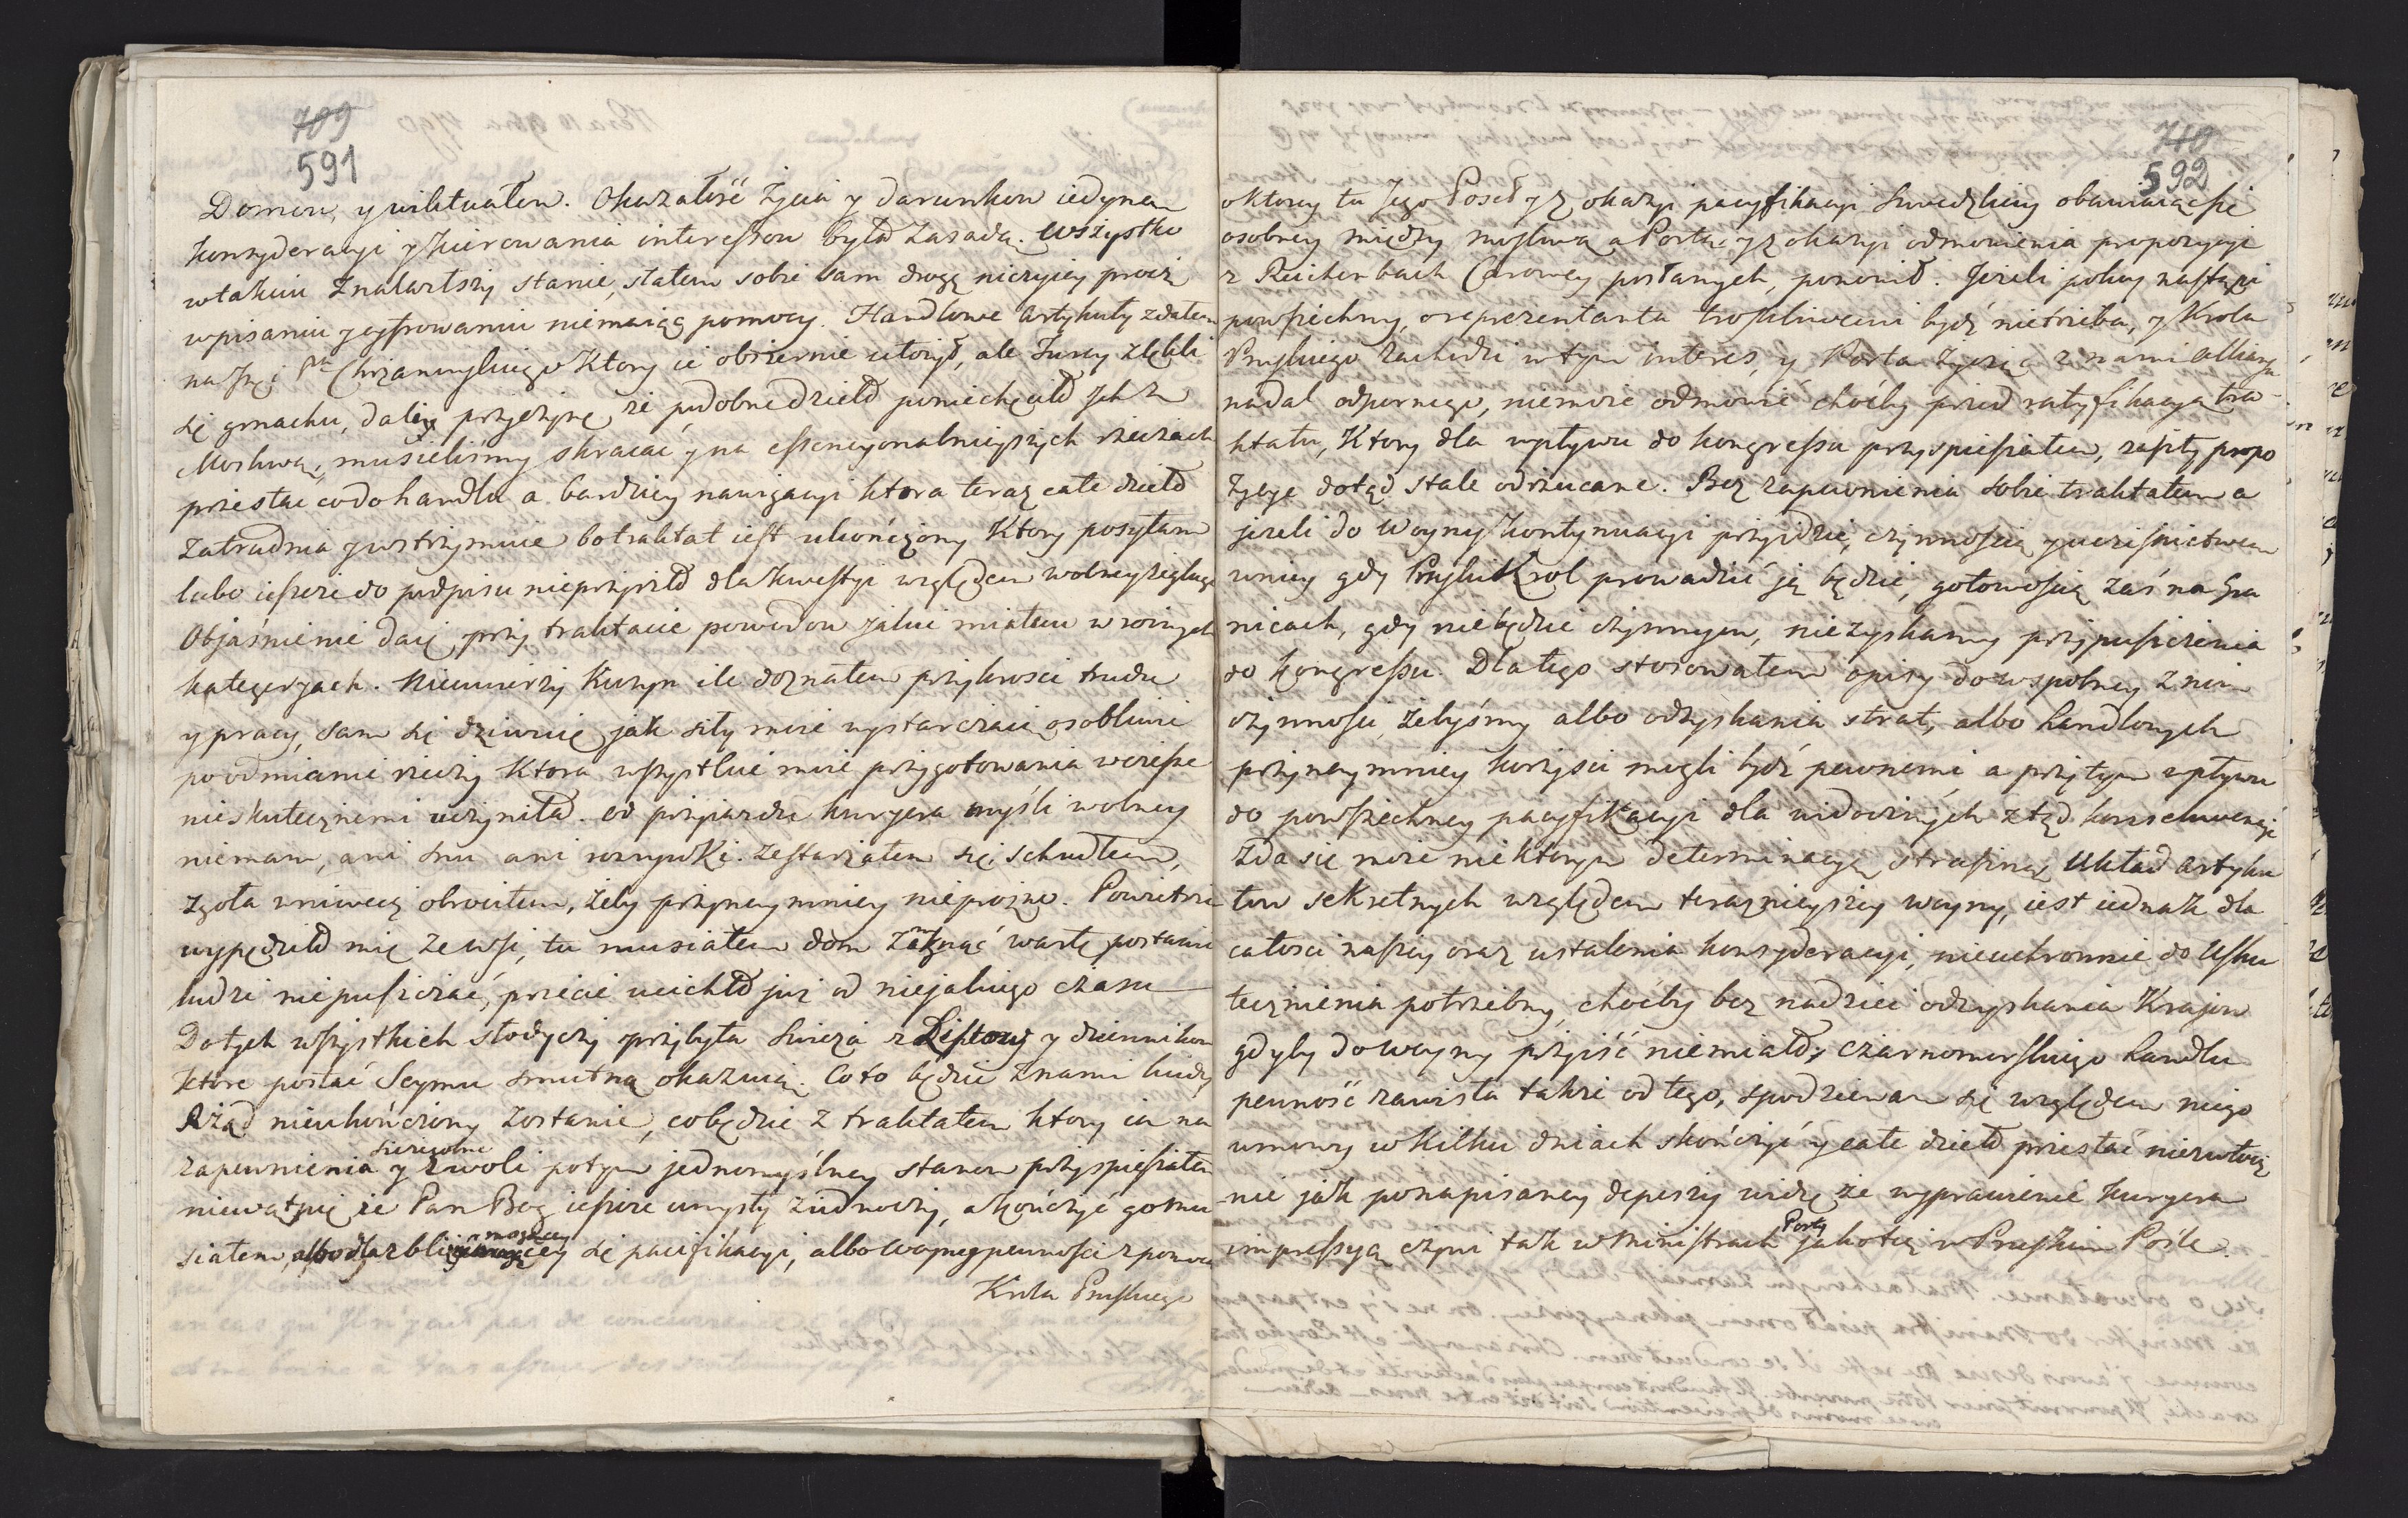 709
591
Domow, y wiktuałem. Okazałość życia y darunkow iedyną
konsyderacyi y kierowania interessow była zasadą. Wszystko
w takim znalazłszy stanie, stałem sobie sam drogę niczyiey procz
w pisaniu y cyfrowaniu niemaiąc pomocy. Handlowe Artykuły zdałem
na JPa Chrzanowskiego Ktory ie obszernie ułożył, ale Turcy zlękli
się gmachu, daley przyczynę że podobne dzieło poniechęciło ich z
Moskwą, musieliśmy skracać y na essencyonalnieyszych rzeczach
przestać co do handlu a bardziey nawigacyi ktora teraz całe dzieło
zatrudnia y wstrzymuie bo traktat iest ukończony Ktory posyłam
lubo ieszcze do podpisu nieprzyszło dla kwestyi względem wolney żeglugi
Objaśnienie daię przy traktacie powodow jakie miałem w roznych
kategoryach. Nieuwierzy Kuzyn ile doznałem przykrości trudu
y pracy, sam się dziwuię jak siły moie wystarczaią osobliwie
po odmianie rzeczy Ktora wszystkie moie przygotowania wczesne
nieskutecznemi uczyniła. od przyiazdu kuryera myśli wolney
niemam, ani snu ani rozrywki. Zestarzałem się, schudłem,
zgoła wniwecz obrociłem, żeby przynaymniey nieprożno. Powietrze
wypędziło mię ze wsi, tu musiałem dom zamknąć wartę postawić
ludzi niepuszczać, przecie ucichło już od niejakiego czasu
Do tych wszystkich słodyczy przybyła świeża z Listow y dziennikow
ktore postać Seymu smutną okazuią. Co to będzie z nami kiedy
Rżąd nieukończony zostanie, co będzie z traktatem ktory ia na
zapewnienia szczegolne y z woli potym jednomyślney stanow przyspieszałem
niewątpię że Pan Bog ieszcze umysły ziednoczy, a kończyć go mu
siałem, albo dla zbliżaiącey się pacifikacyi, albo woyny pewności z pomocą
Krola Pruskiego
710
592
o ktorey tu Jego Poseł y z okazyi pacyfikacyi Szwedzkiey obawiaiąc się
osobney między Moskwą a Portą y z okazyi odmowienia propozycyi
z Reichenbach Carowey posłanych, ponowił. Jeżeli pokoy nastąpi
powszechny, o reprezentanta troskliwemi bydź nietrzeba, y Krola
Pruskiego zachodzi w tym interes, y Porta życząc z nami Allianzu
nadal odpornego, niemoże odmowić choćby przed ratyfikacyą tra-
ktatu, Ktory dla wpływu do kongressu przyspieszałem, zaszłą propo
zycyę dotąd stale odrzucane. Bez zapewnienia sobie traktatem a
jeżeli do Woyny kontynuacyi przyidzie, czynnością y uczestnictwem
w niey gdy Pruski Krol prowadzić ją będzie, gotowością zaś na Gra
nicach, gdy niebędzie czynnym, niezyskamy przypuszczenia
do Kongressu. Dlatego stosowałem opisy do wspolney z nim
czynności, żebyśmy albo odzyskania strat, albo handlowych
przynaymniey korzyści mogli bydź pewnemi a przytym wpływu
do powszechney pacyfikacyi dla widocznych ztąd konsekwencyi
Zda się może niektorym determinacyą straszną Układ Artyku
łow sekretnych względem teraznieyszey woyny, iest iednak dla
całości naszey oraz ustalenia konsyderacyi, nieuchronnie do Usku
tecznienia potrzebny, choćby bez nadziei odzyskania Krajow
gdyby do woyny przyiść niemiało, Czarnomorskiego handlu
pewność zawisła także od tego, spodziewam się względem niego
umowy w kilku dniach skończyć y całe dzieło przesłać niezwłocz
nie jak po napisaney depeszy widzę że wyprawienie kuryera
impressyą czyni tak w Ministrach Porty jakoteż w Pruskim Pośle.